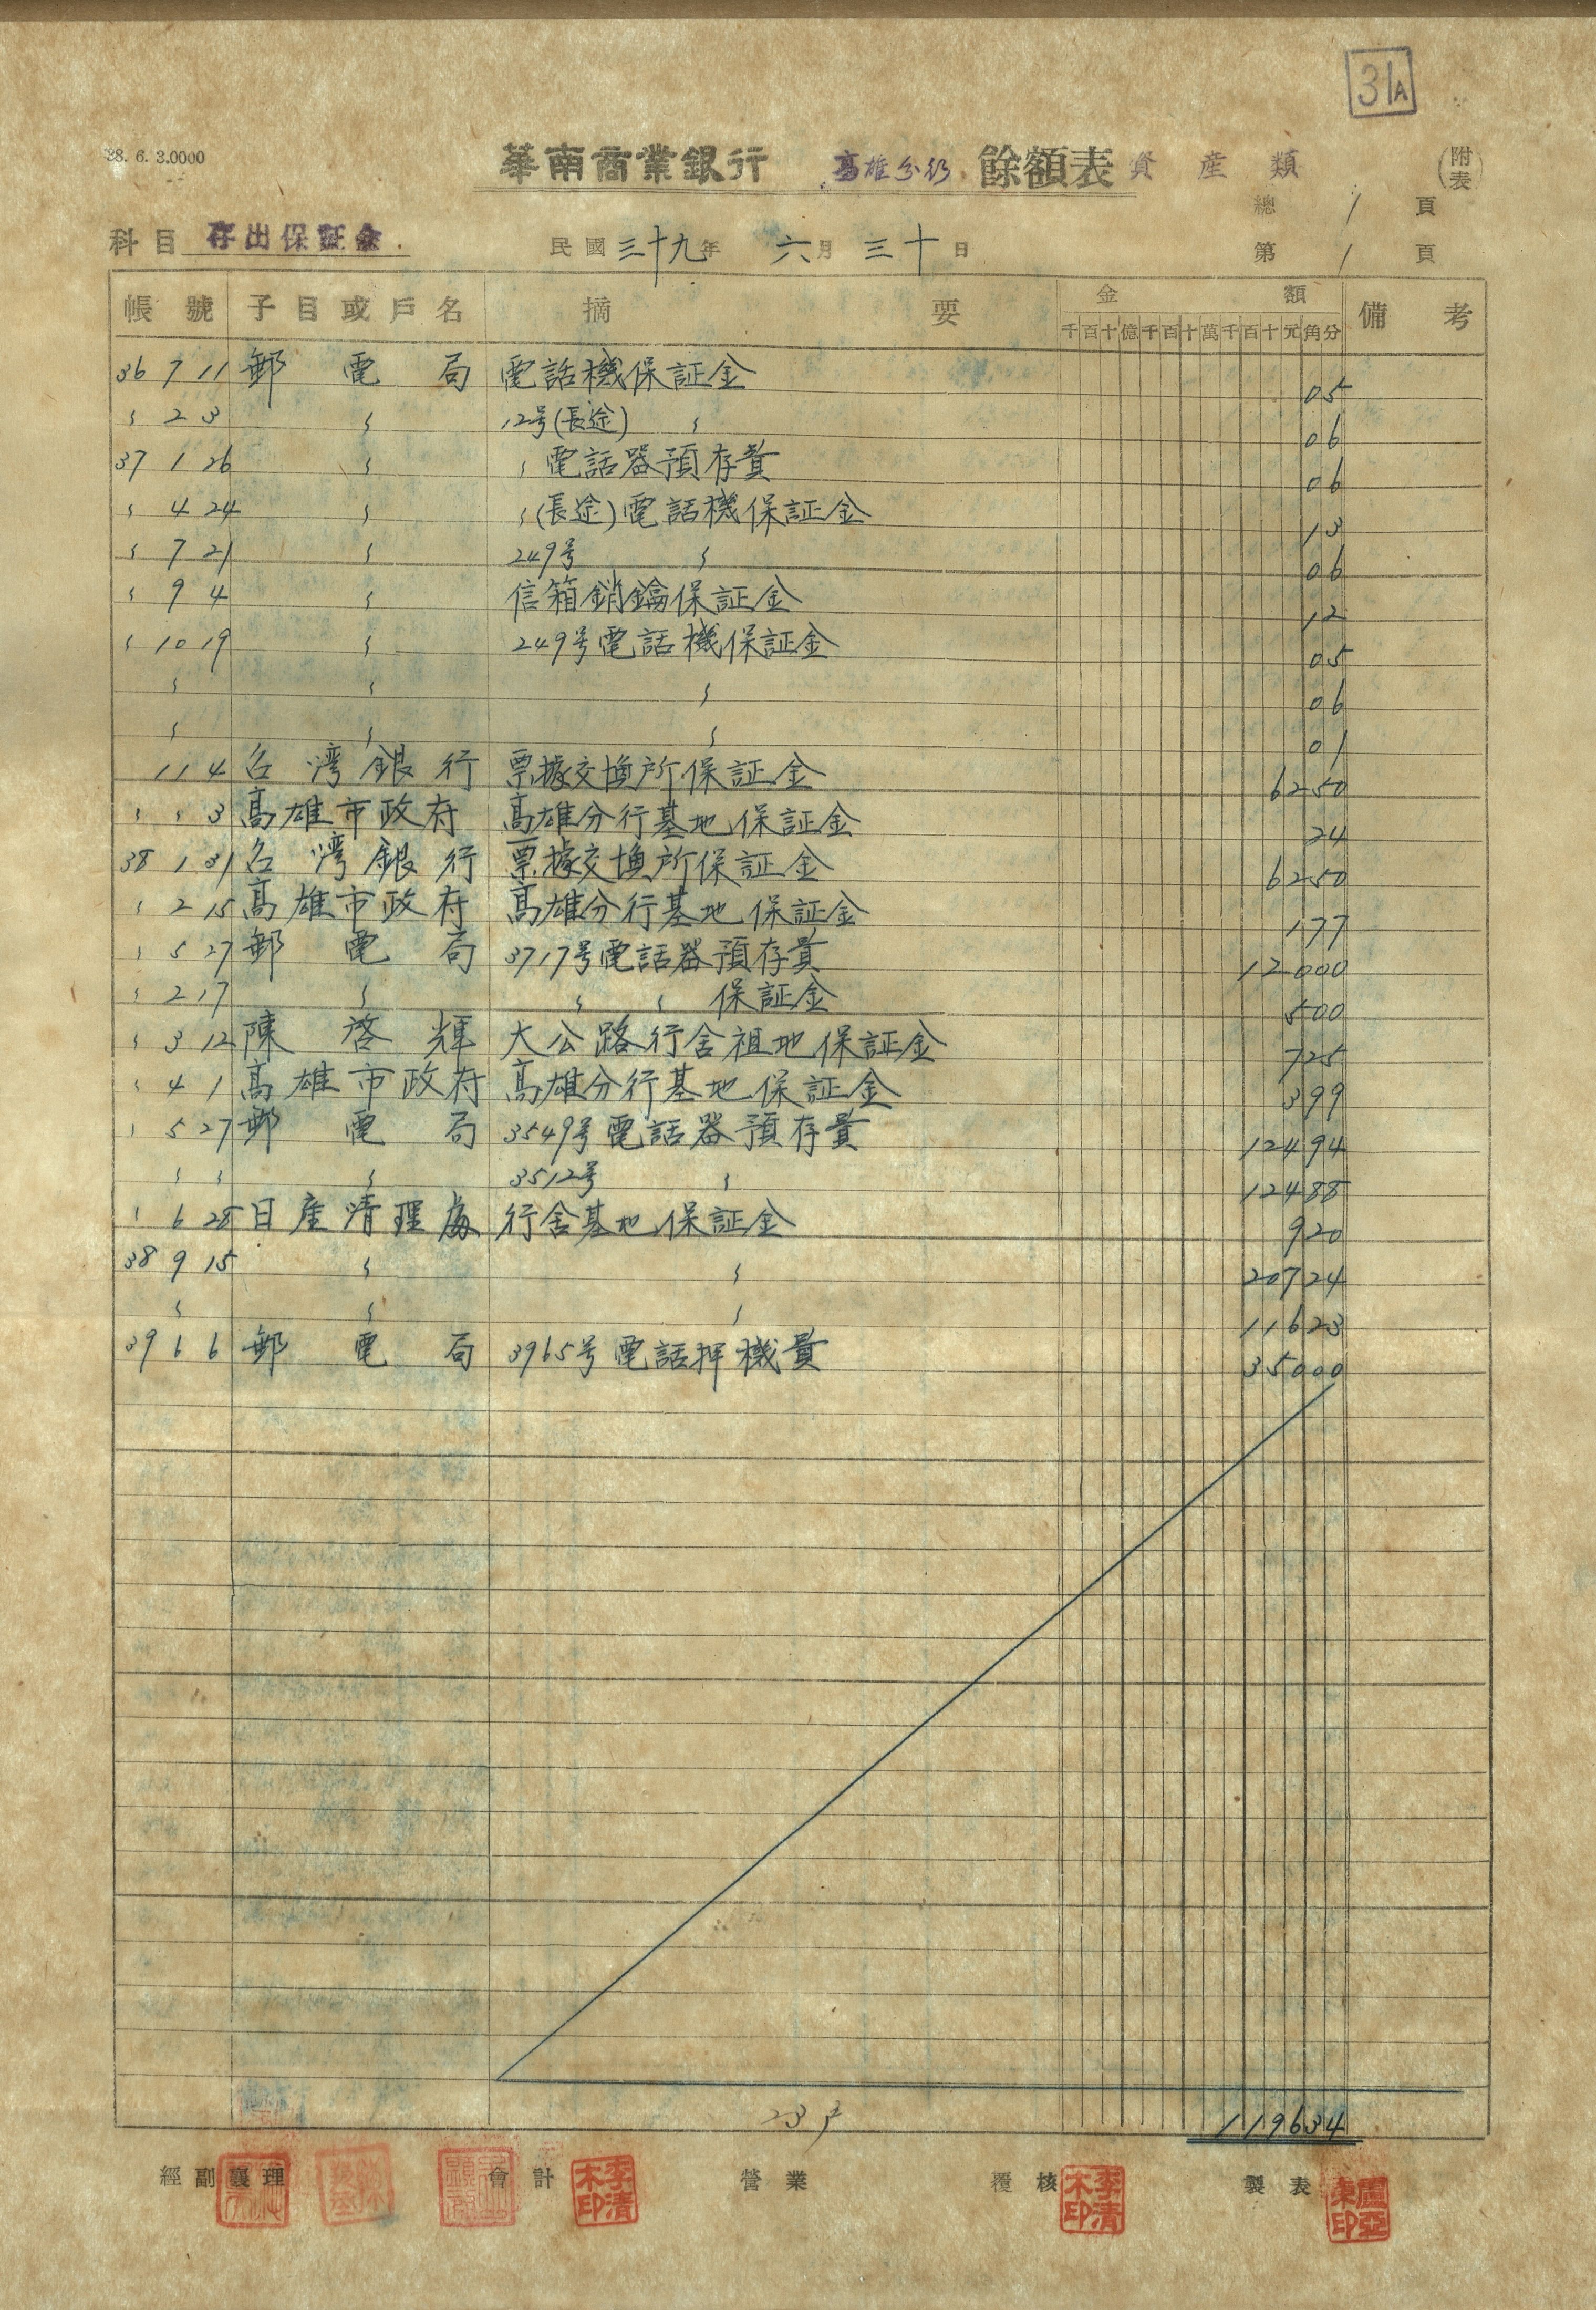 31A
38. 6. 3.0000
華南商業銀行 高雄分行 餘額表 資產類 (附表)
總 1 頁
科目 存出保証金. 民國三十九年 六月 三十日 第 1 頁
帳號 子目或戶名 摘要 金額 備考
千百十億千百十萬千百十元角分
36 7 11 郵電局 電話機保証金 05
〃 2 3 〃 12号(長途) 〃 06
37 1 26 〃 〃 電話器預存費 06
〃 4 24 〃 〃(長途)電話機保証金 13
〃 7 21 〃 249号 〃 06
〃 9 4 〃 信箱銷鑰保証金 12
〃 10 19 〃 249号電話機保証金 05
〃 〃 〃 06
〃 〃 〃 01
11 4 台湾銀行 票據交換所保証金 6250
〃 〃 3 高雄市政府 高雄分行基地保証金 24
38 1 31 台湾銀行 票據交換所保証金 6250
〃 2 15 高雄市政府 高雄分行基地保証金 177
〃 5 27 郵電局 3717号電話器預存費 12000
〃 2 17 〃 〃 〃 保証金 500
〃 3 12 陳啓輝 大公路行舍祖地保証金 725
〃 4 1 高雄市政府 高雄分行基地保証金 399
〃 5 27 郵電局 3549号電話器預存費 12494
〃 〃 〃 3512号 〃 12488
〃 6 28 日產清理處 行舍基地保証金 920
38 9 15 〃 〃 20724
〃 〃 〃 11623
39 6 6 郵電局 3965号電話押機費 35000
23戶 119634
經副襄理 會計 李清木印 營業 覆核 李清木印 製表 盧亞東印